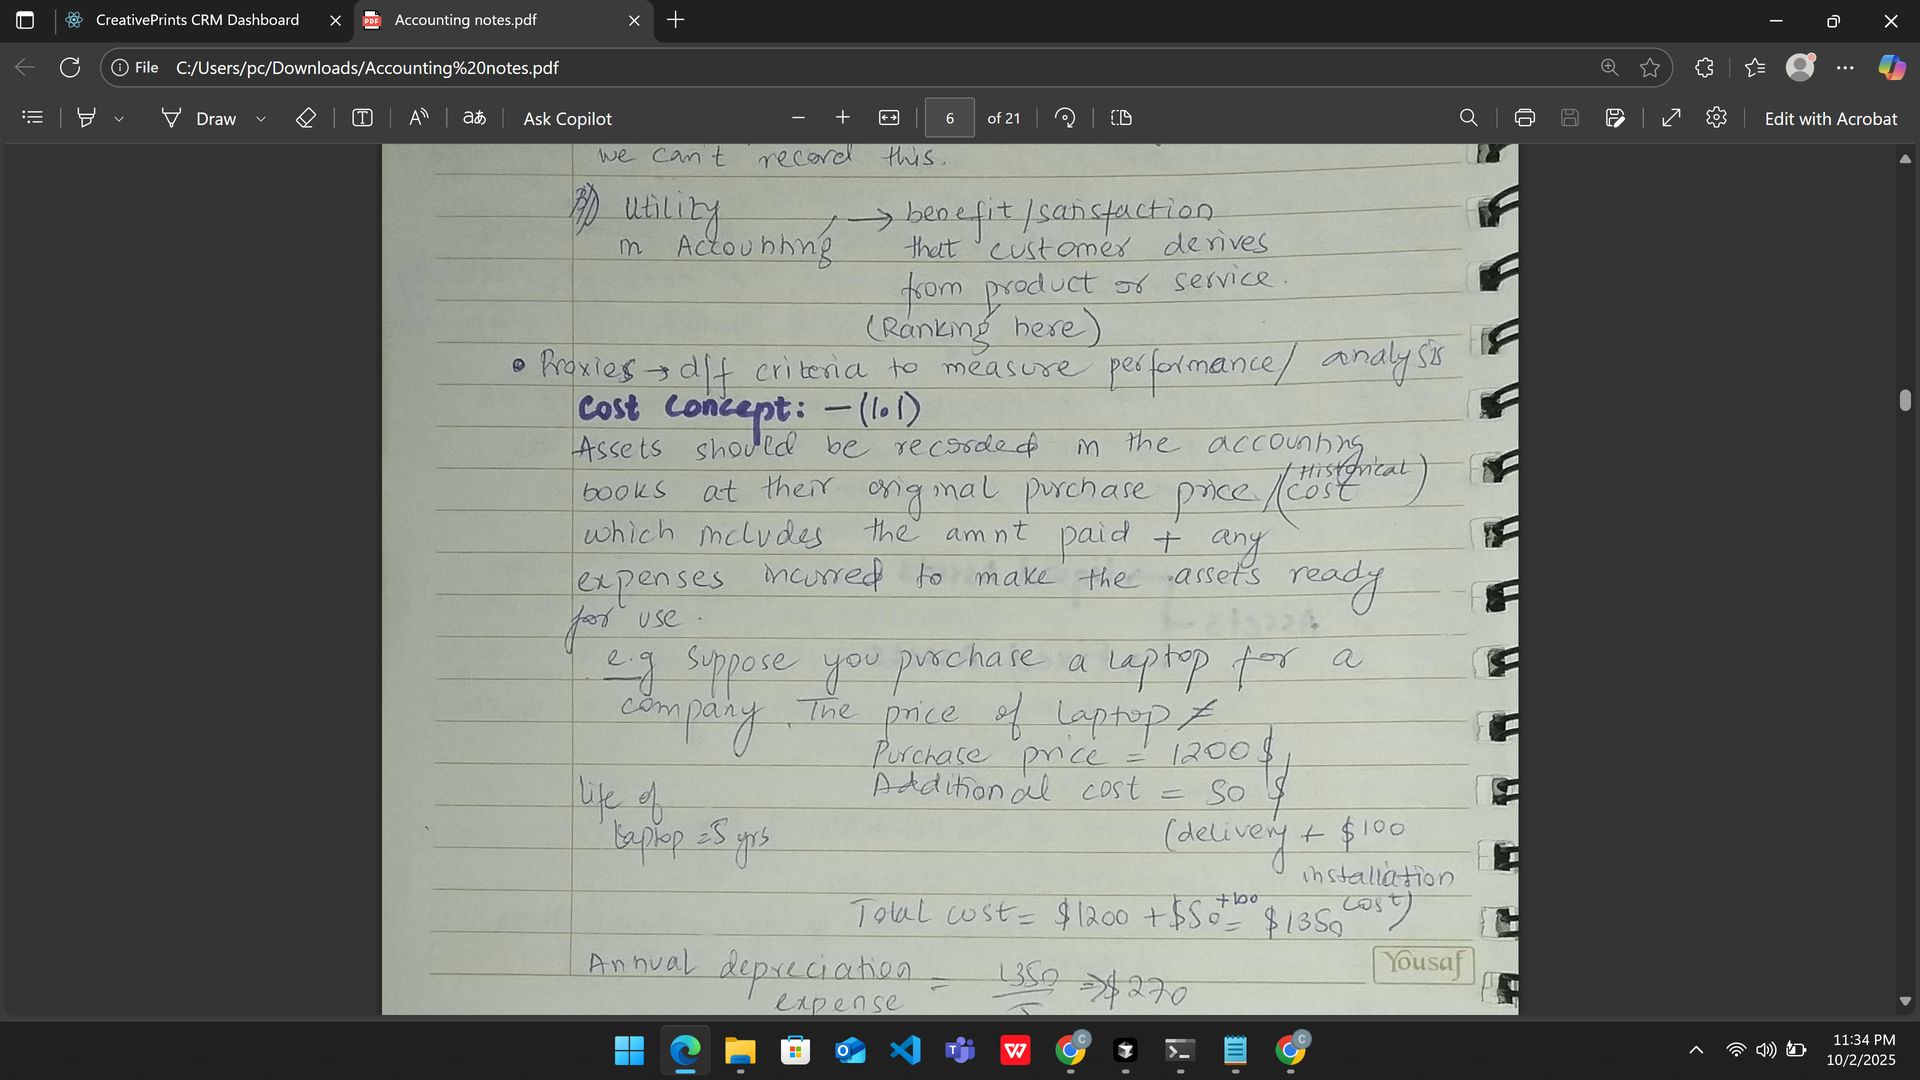 CreativePrints CRM Dashboard
Accounting notes.pdf
File C:/Users/pc/Downloads/Accounting%20notes.pdf
Draw
Ask Copilot
6 of 21
Edit with Acrobat
we can't record this.
3) Utility → benefit/satisfaction
in Accounting that customer derives
from product or service.
(Ranking here)
• Proxies → diff criteria to measure performance/ analysis
Cost Concept: - (1.1)
Assets should be recorded in the accounting
books at their original purchase price/(Historical cost)
which includes the amnt paid + any
expenses incurred to make the assets ready
for use.
e.g Suppose you purchase a laptop for a
company. The price of laptop ≠
Purchase price = 1200 $
Additional cost = 50 $
life of
laptop = 5 yrs
(delivery + $100
installation
cost)
Total cost = $1200 + $50 +100 = $1350
Annual depreciation = 1350 ⇒ $270
expense 5
Yousaf
11:34 PM
10/2/2025